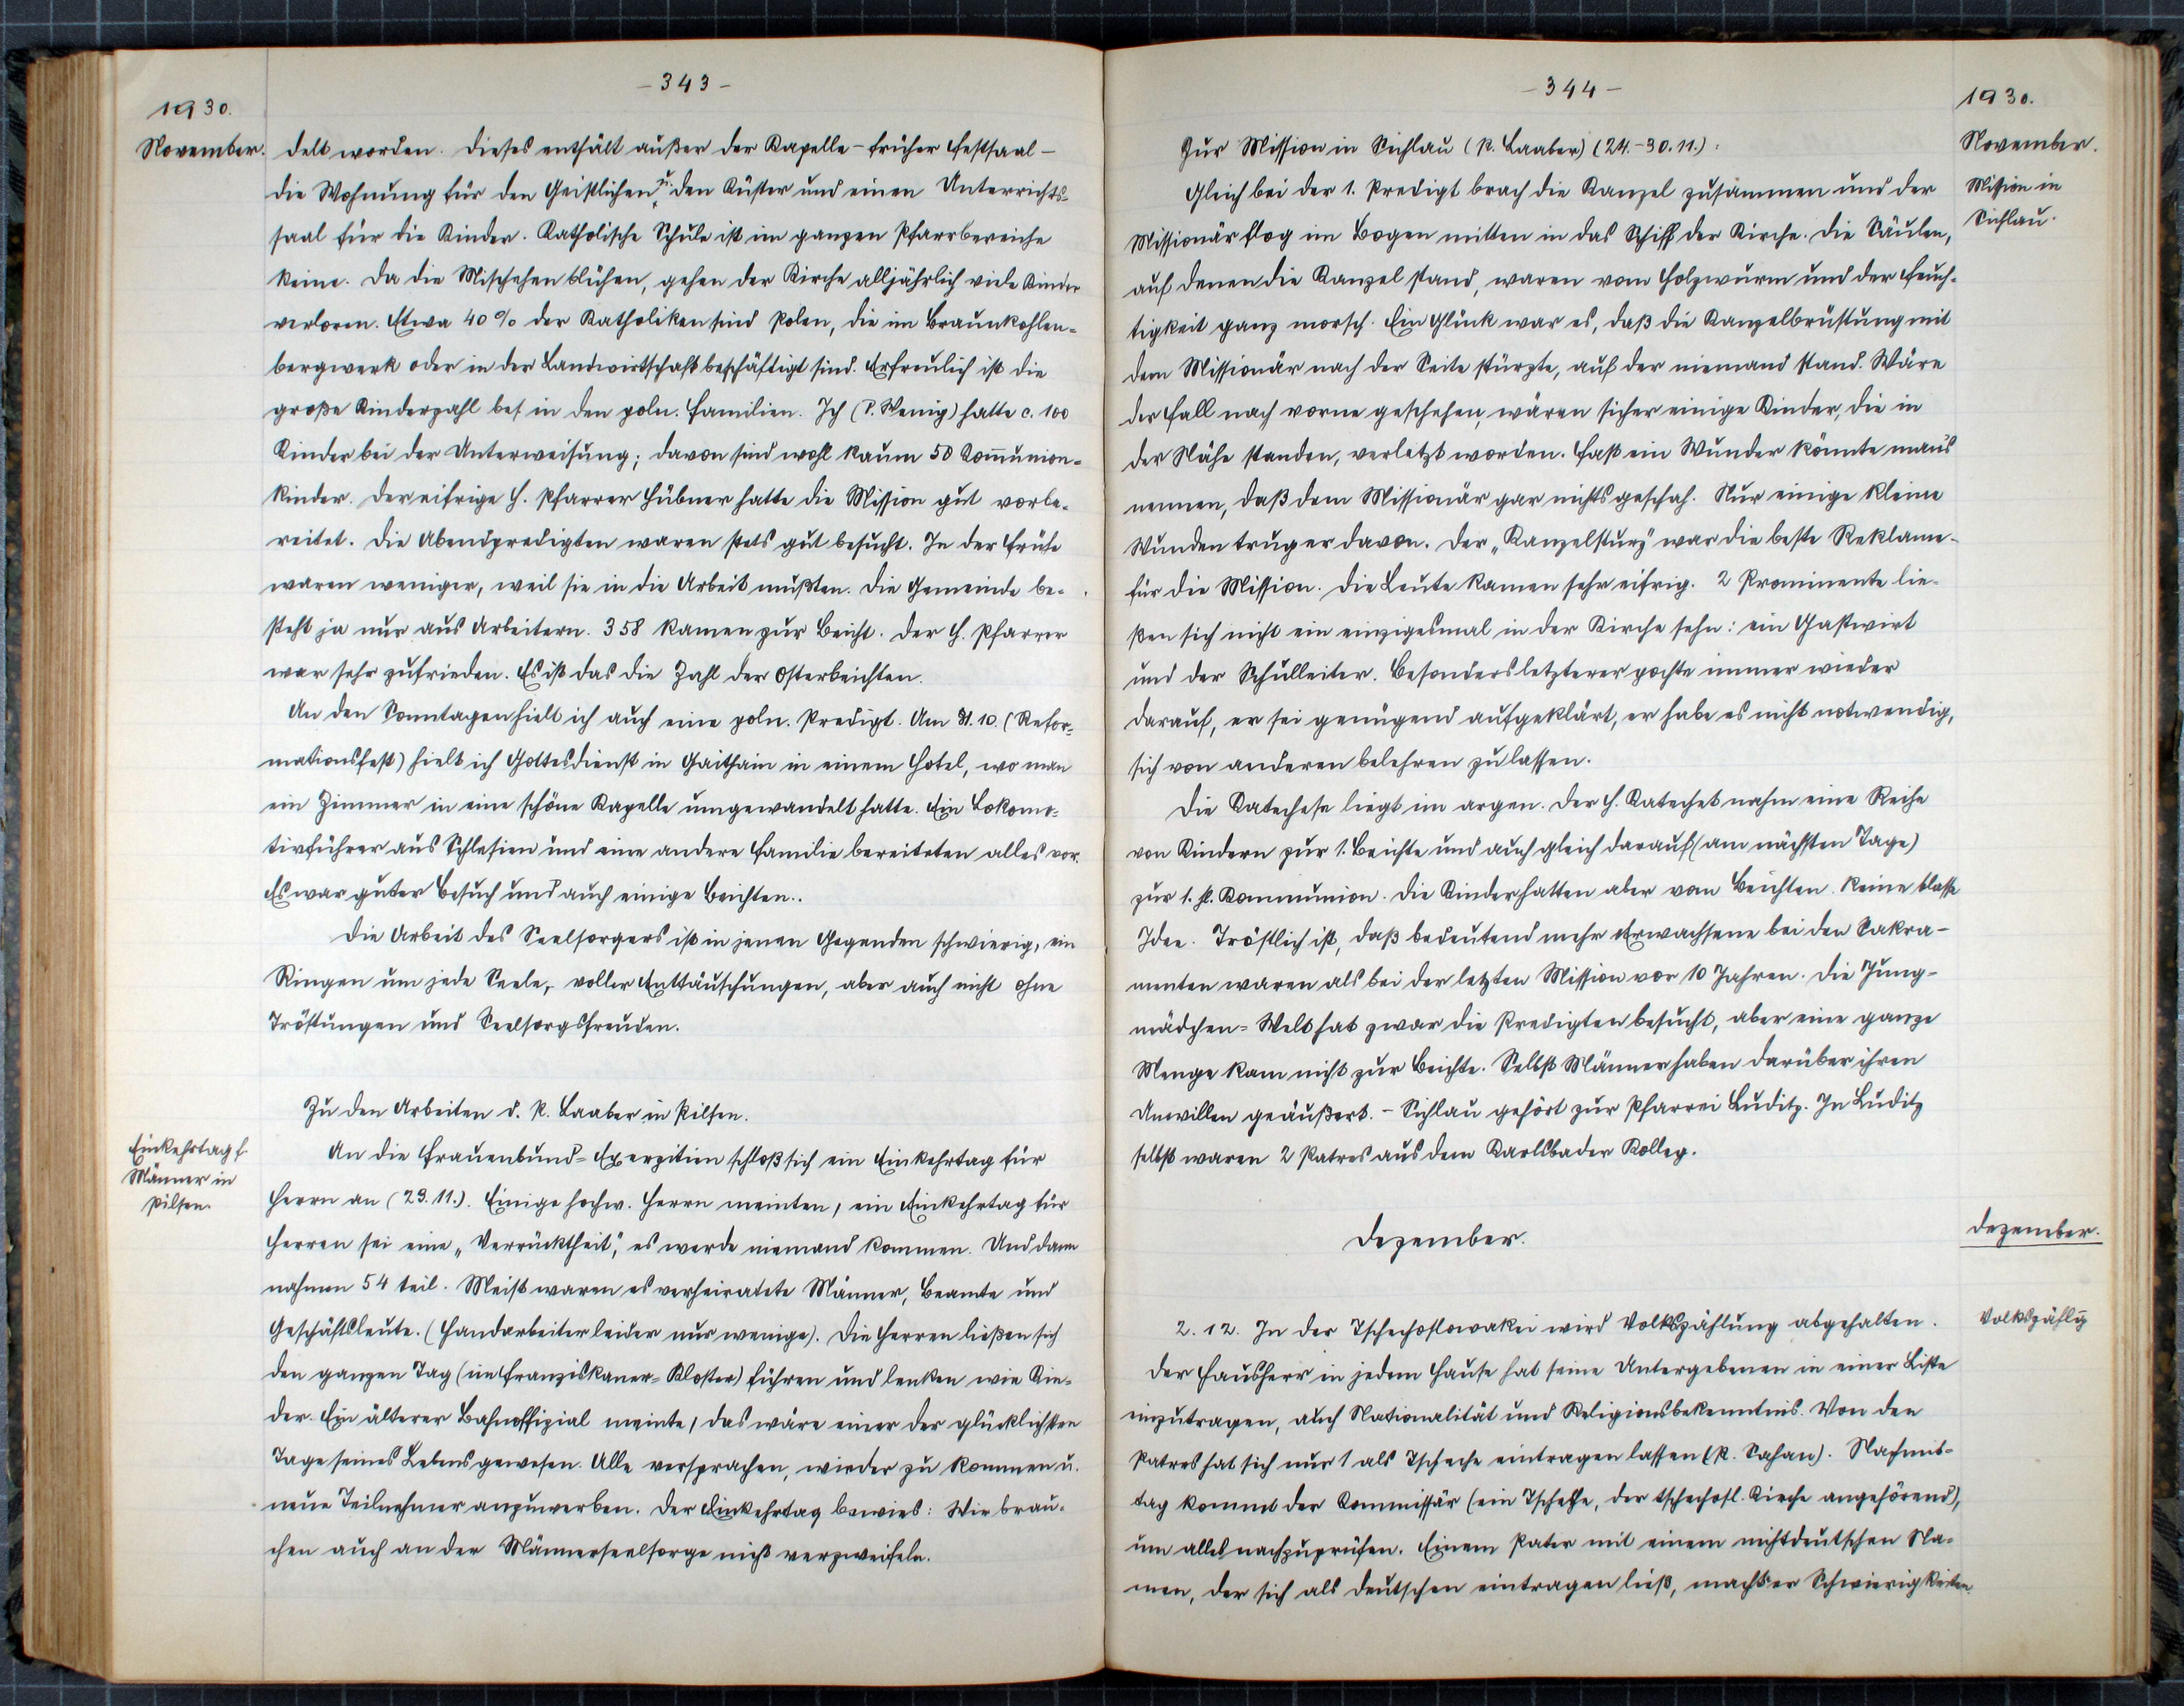 - 343 -
1930.
November.
delt worden. Dieses enthält außer der Kapelle – früher Festsaal –
die Wohnung für den Geistlichen u. den Küster und einen Unterrichts-
saal für die Kinder. Katholische Schule ist im ganzen Pfarrbereiche
keine. Da die Mischehen blühen, gehen der Kirche alljährlich viele Kinder
verloren. Etwa 40% der Katholiken sind Polen, die im Braunkohlen-
bergwerk oder in der Landwirtschaft beschäftigt sind. Erfreulich ist die
große Kinderzahl bes. in den poln. Familien. Ich (P. Wenig) hatte c. 100
Kinder bei der Unterweisung; davon sind wohl kaum 50 Kommunion-
kinder. Der eifrige H. Pfarrer Hübner hatte die Mission gut vorbe-
reitet. Die Abendpredigten waren stets gut besucht. In der Frühe
waren weniger, weil sie in die Arbeit mußten. Die Gemeinde be-
steht ja nur aus Arbeitern. 358 kamen zur Beicht. Der H. Pfarrer
war sehr zufrieden. Es ist das die Zahl der Osterbeichten.
An den Sonntagen hielt ich auch eine poln. Predigt. Am 31. 10. (Refor-
mationsfest) hielt ich Gottesdienst in Gaithain in einem Hotel, wo man
ein Zimmer in eine schöne Kapelle umgewandelt hatte. Ein Lokomo-
tivführer aus Schlesien und eine andere Familie bereiteten alles vor.
Es war guter Besuch und auch einige Beichten..
Die Arbeit des Seelsorgers ist in jenen Gegenden schwierig, ein
Ringen um jede Seele, voller Enttäuschungen, aber auch nicht ohne
Tröstungen und Seelsorgsfreuden.
Zu den Arbeiten d. P. Laaber in Pilsen.
Einkehrtag f.
Männer in
Pilsen.
An die Frauenbund-Exerzitien schloß sich ein Einkehrtag für
Herrn an (29. 11.). Einige hochw. Herrn meinten, ein Einkehrtag für
Herren sei eine „Verrücktheit“, es werde niemand kommen. Und dann
nahmen 54 teil. Meist waren es verheiratete Männer, Beamte und
Geschäftsleute. (Handarbeiter leider nur wenige). Die Herren ließen sich
den ganzen Tag (im Franziskaner-Kloster) führen und lenken wie Kin-
der. Ein älterer Bahnoffizial meinte, das wäre einer der glücklichsten
Tage seines Lebens gewesen. Alle versprachen, wieder zu kommen u.
neue Teilnehmer anzuwerben. Der Einkehrtag bewies: Wir brau-
chen auch an der Männerseelsorge nicht verzweifeln.
- 344 -
1930.
November.
Mission in
Sichlau.
Zur Mission in Sichlau (P. Laaber) (24.-30. 11.):
Gleich bei der 1. Predigt brach die Kanzel zusammen und der
Missionär flog im Bogen mitten in das Schiff der Kirche. Die Säulen,
auf denen die Kanzel stand, waren vom Holzwurm und der Feuch-
tigkeit ganz morsch. Ein Glück war es, daß die Kanzelbrüstung mit
dem Missionär nach der Seite stürzte, auf der niemand stand. Wäre
der Fall nach vorne geschehen, wären sicher einige Kinder, die in
der Nähe standen, verletzt worden. Fast ein Wunder könnte man's
nennen, daß dem Missionär gar nichts geschah. Nur einige kleine
Wunden trug er davon. Der „Kanzelsturz“ war die beste Reklame-
für die Mission. Die Leute kamen sehr eifrig. 2 Prominente lie-
ßen sich nicht ein einzigesmal in der Kirche sehn: ein Gastwirt
und der Schulleiter. Besonders letzterer pochte immer wieder
darauf, er sei genügend aufgeklärt, er habe es nicht notwendig,
sich von anderen belehren zu lassen.
Die Katechese liegt im argen. Der H. Katechet nahm eine Reihe
von Kindern zur 1. Beichte und auch gleich darauf (am nächsten Tage)
zur 1. hl. Kommunion. Die Kinder hatten aber vom Beichten keine blasse
Idee. Tröstlich ist, daß bedeutend mehr Erwachsene bei den Sakra-
menten waren als bei der letzten Mission vor 10 Jahren. Die Jung-
mädchen-Welt hat zwar die Predigten besucht, aber eine ganze
Menge kam nicht zur Beichte. Selbst Männer haben darüber ihren
Unwillen geäußert. – Sichlau gehört zur Pfarrei Luditz. In Luditz
selbst waren 2 Patres aus dem Karlsbader Kolleg.
Dezember.
Dezember.
Volkszählg
2. 12. In der Tschechoslowakei wird Volkszählung abgehalten.
Der Hausherr in jedem Hause hat seine Untergebenen in einer Liste
einzutragen, auch Nationalität und Religionsbekenntnis. Von den
Patres hat sich nur 1 als Tscheche eintragen lassen (P. Cahan). Nachmit-
tag kommt der Kommissär (ein Tscheche, der tschechosl. Kirche angehörend),
um alles nachzuprüfen. Einem Pater mit einem nichtdeutschen Na-
men, der sich als Deutschen eintragen ließ, macht er Schwierigkeiten